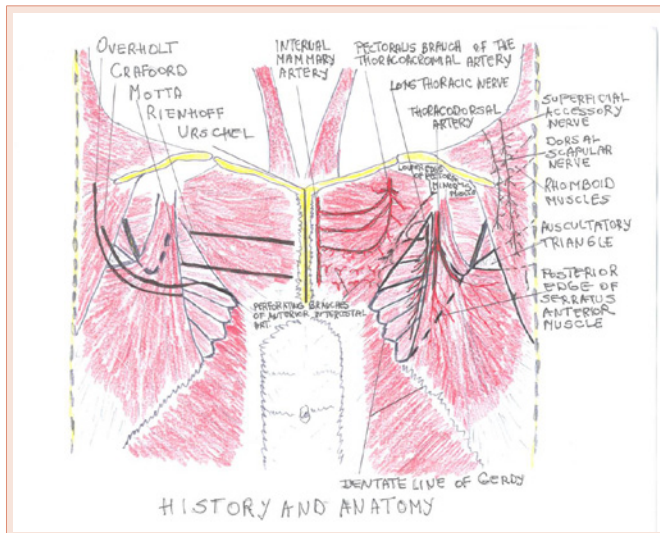 OVERHOLT
CRAFOORD
MOTTA
RIENHOFF
URSCHEL
INTERNAL
MAMMARY
ARTERY
PECTORALIS BRANCH OF THE
THORACOACROMIAL ARTERY
LONG THORACIC NERVE
THORACODORSAL
ARTERY
SUPERFICIAL
ACCESSORY
NERVE
DORSAL
SCAPULAR
NERVE
RHOMBOID
MUSCLES
AUSCULTATORY
TRIANGLE
POSTERIOR
EDGE OF
SERRATUS
ANTERIOR
MUSCLE
LOWER EDGE
OF PECTORALIS
MINOR
MUSCLE
PERFORATING BRANCHES
OF ANTERIOR INTERCOSTAL
ART.
DENTATE LINE OF GERDY
HISTORY AND ANATOMY